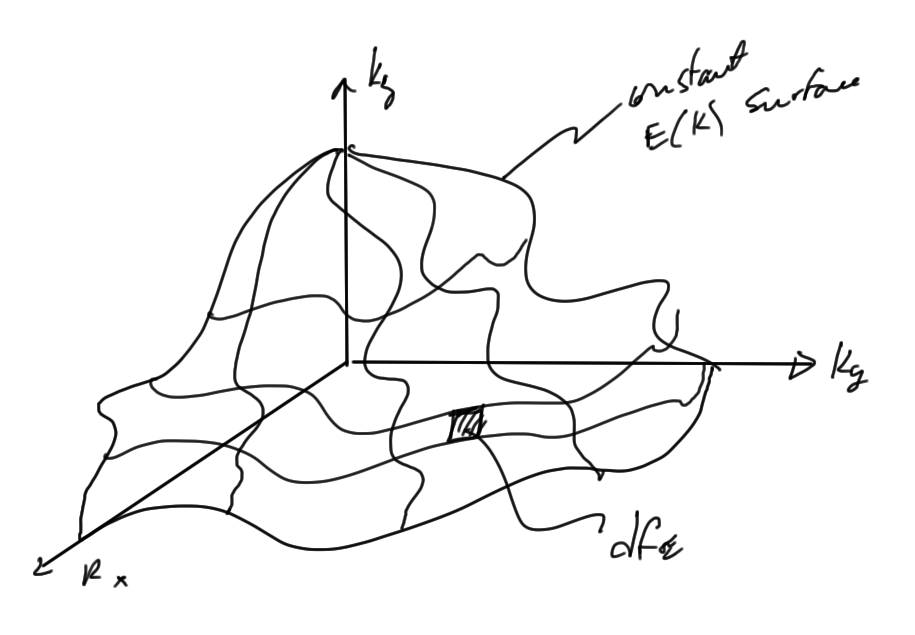 kz
constant
E(k) surface
ky
dfE
kx